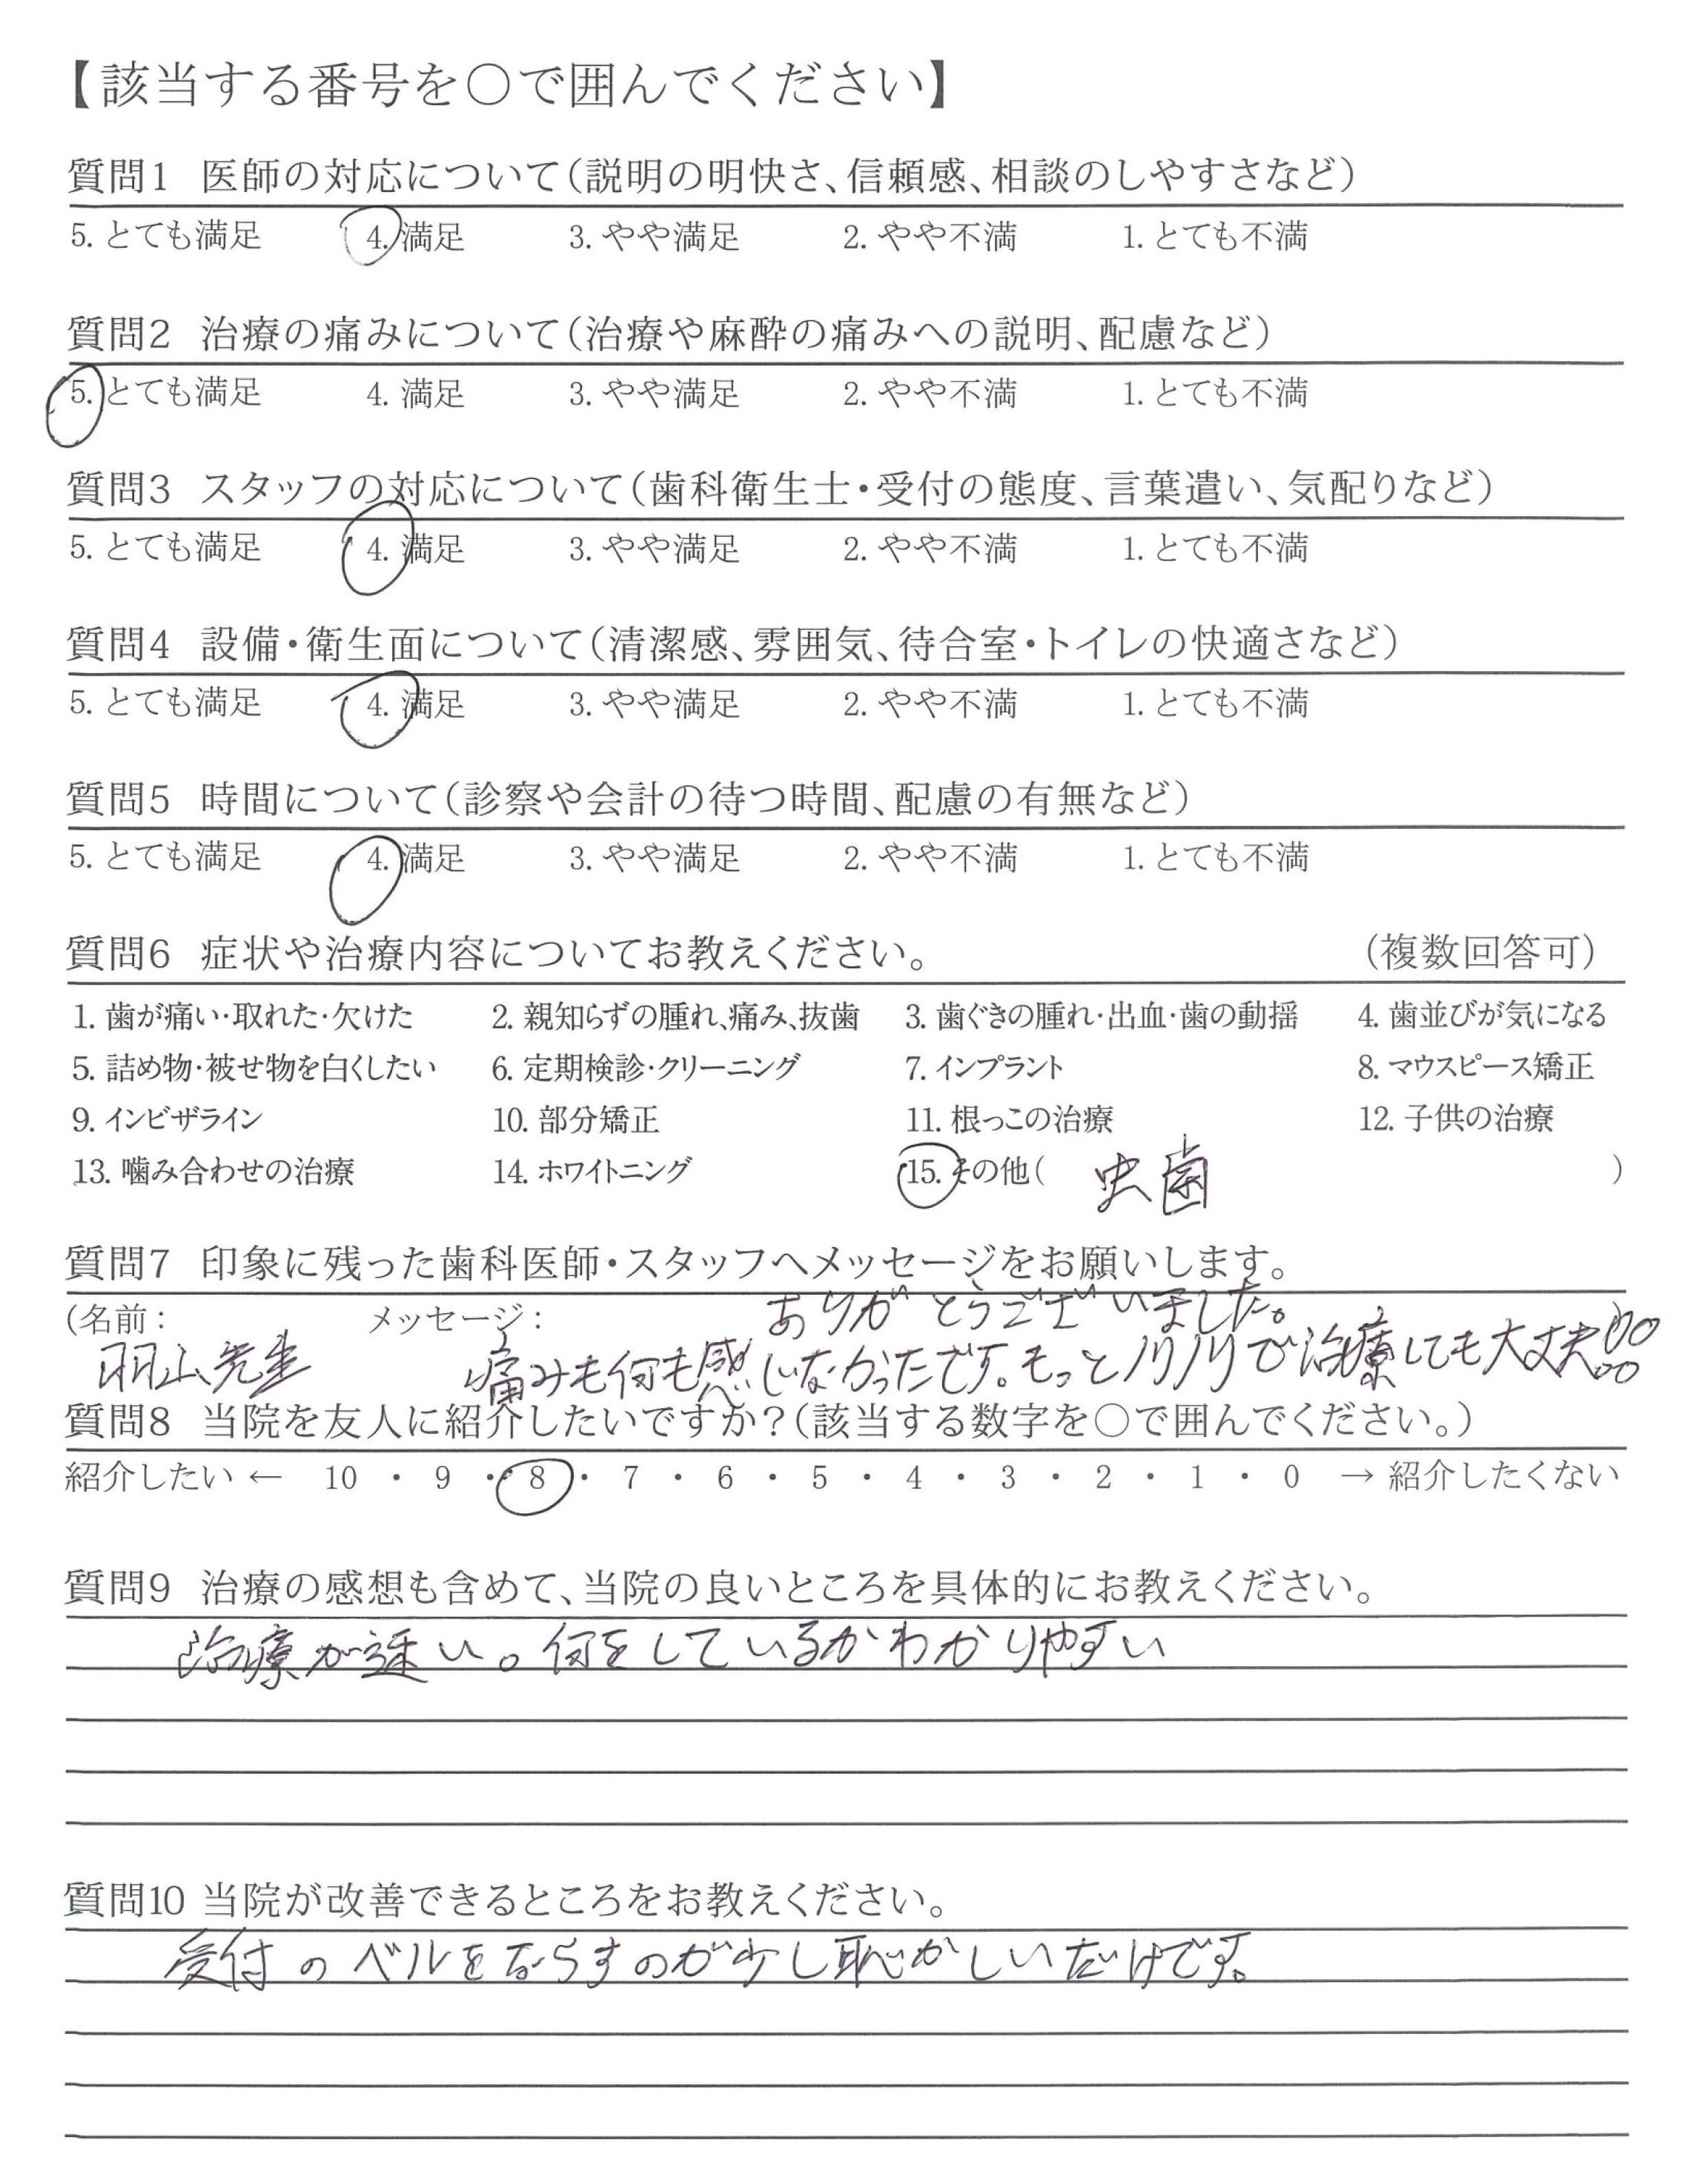 【該当する番号を○で囲んでください】
質問1 医師の対応について(説明の明快さ、信頼感、相談のしやすさなど)
5. とても満足 4. 満足 3. やや満足 2. やや不満 1. とても不満
質問2 治療の痛みについて(治療や麻酔の痛みへの説明、配慮など)
5. とても満足 4. 満足 3. やや満足 2. やや不満 1. とても不満
質問3 スタッフの対応について(歯科衛生士・受付の態度、言葉遣い、気配りなど)
5. とても満足 4. 満足 3. やや満足 2. やや不満 1. とても不満
質問4 設備・衛生面について(清潔感、雰囲気、待合室・トイレの快適さなど)
5. とても満足 4. 満足 3. やや満足 2. やや不満 1. とても不満
質問5 時間について(診察や会計の待つ時間、配慮の有無など)
5. とても満足 4. 満足 3. やや満足 2. やや不満 1. とても不満
質問6 症状や治療内容についてお教えください。 (複数回答可)
1. 歯が痛い・取れた・欠けた 2. 親知らずの腫れ、痛み、抜歯 3. 歯ぐきの腫れ・出血・歯の動揺 4. 歯並びが気になる
5. 詰め物・被せ物を白くしたい 6. 定期検診・クリーニング 7. インプラント 8. マウスピース矯正
9. インビザライン 10. 部分矯正 11. 根っこの治療 12. 子供の治療
13. 噛み合わせの治療 14. ホワイトニング 15. その他( 虫歯 )
質問7 印象に残った歯科医師・スタッフへメッセージをお願いします。
(名前: メッセージ: ありがとうございました。 )
羽山先生 痛みも何も感じなかったです。もっとノリノリで治療しても大丈夫
質問8 当院を友人に紹介したいですか?(該当する数字を○で囲んでください。)
紹介したい ← 10 ・ 9 ・ 8 ・ 7 ・ 6 ・ 5 ・ 4 ・ 3 ・ 2 ・ 1 ・ 0 → 紹介したくない
質問9 治療の感想も含めて、当院の良いところを具体的にお教えください。
治療が速い。何をしているかわかりやすい
質問10 当院が改善できるところをお教えください。
受付のベルをならすのが少し恥かしいだけです。